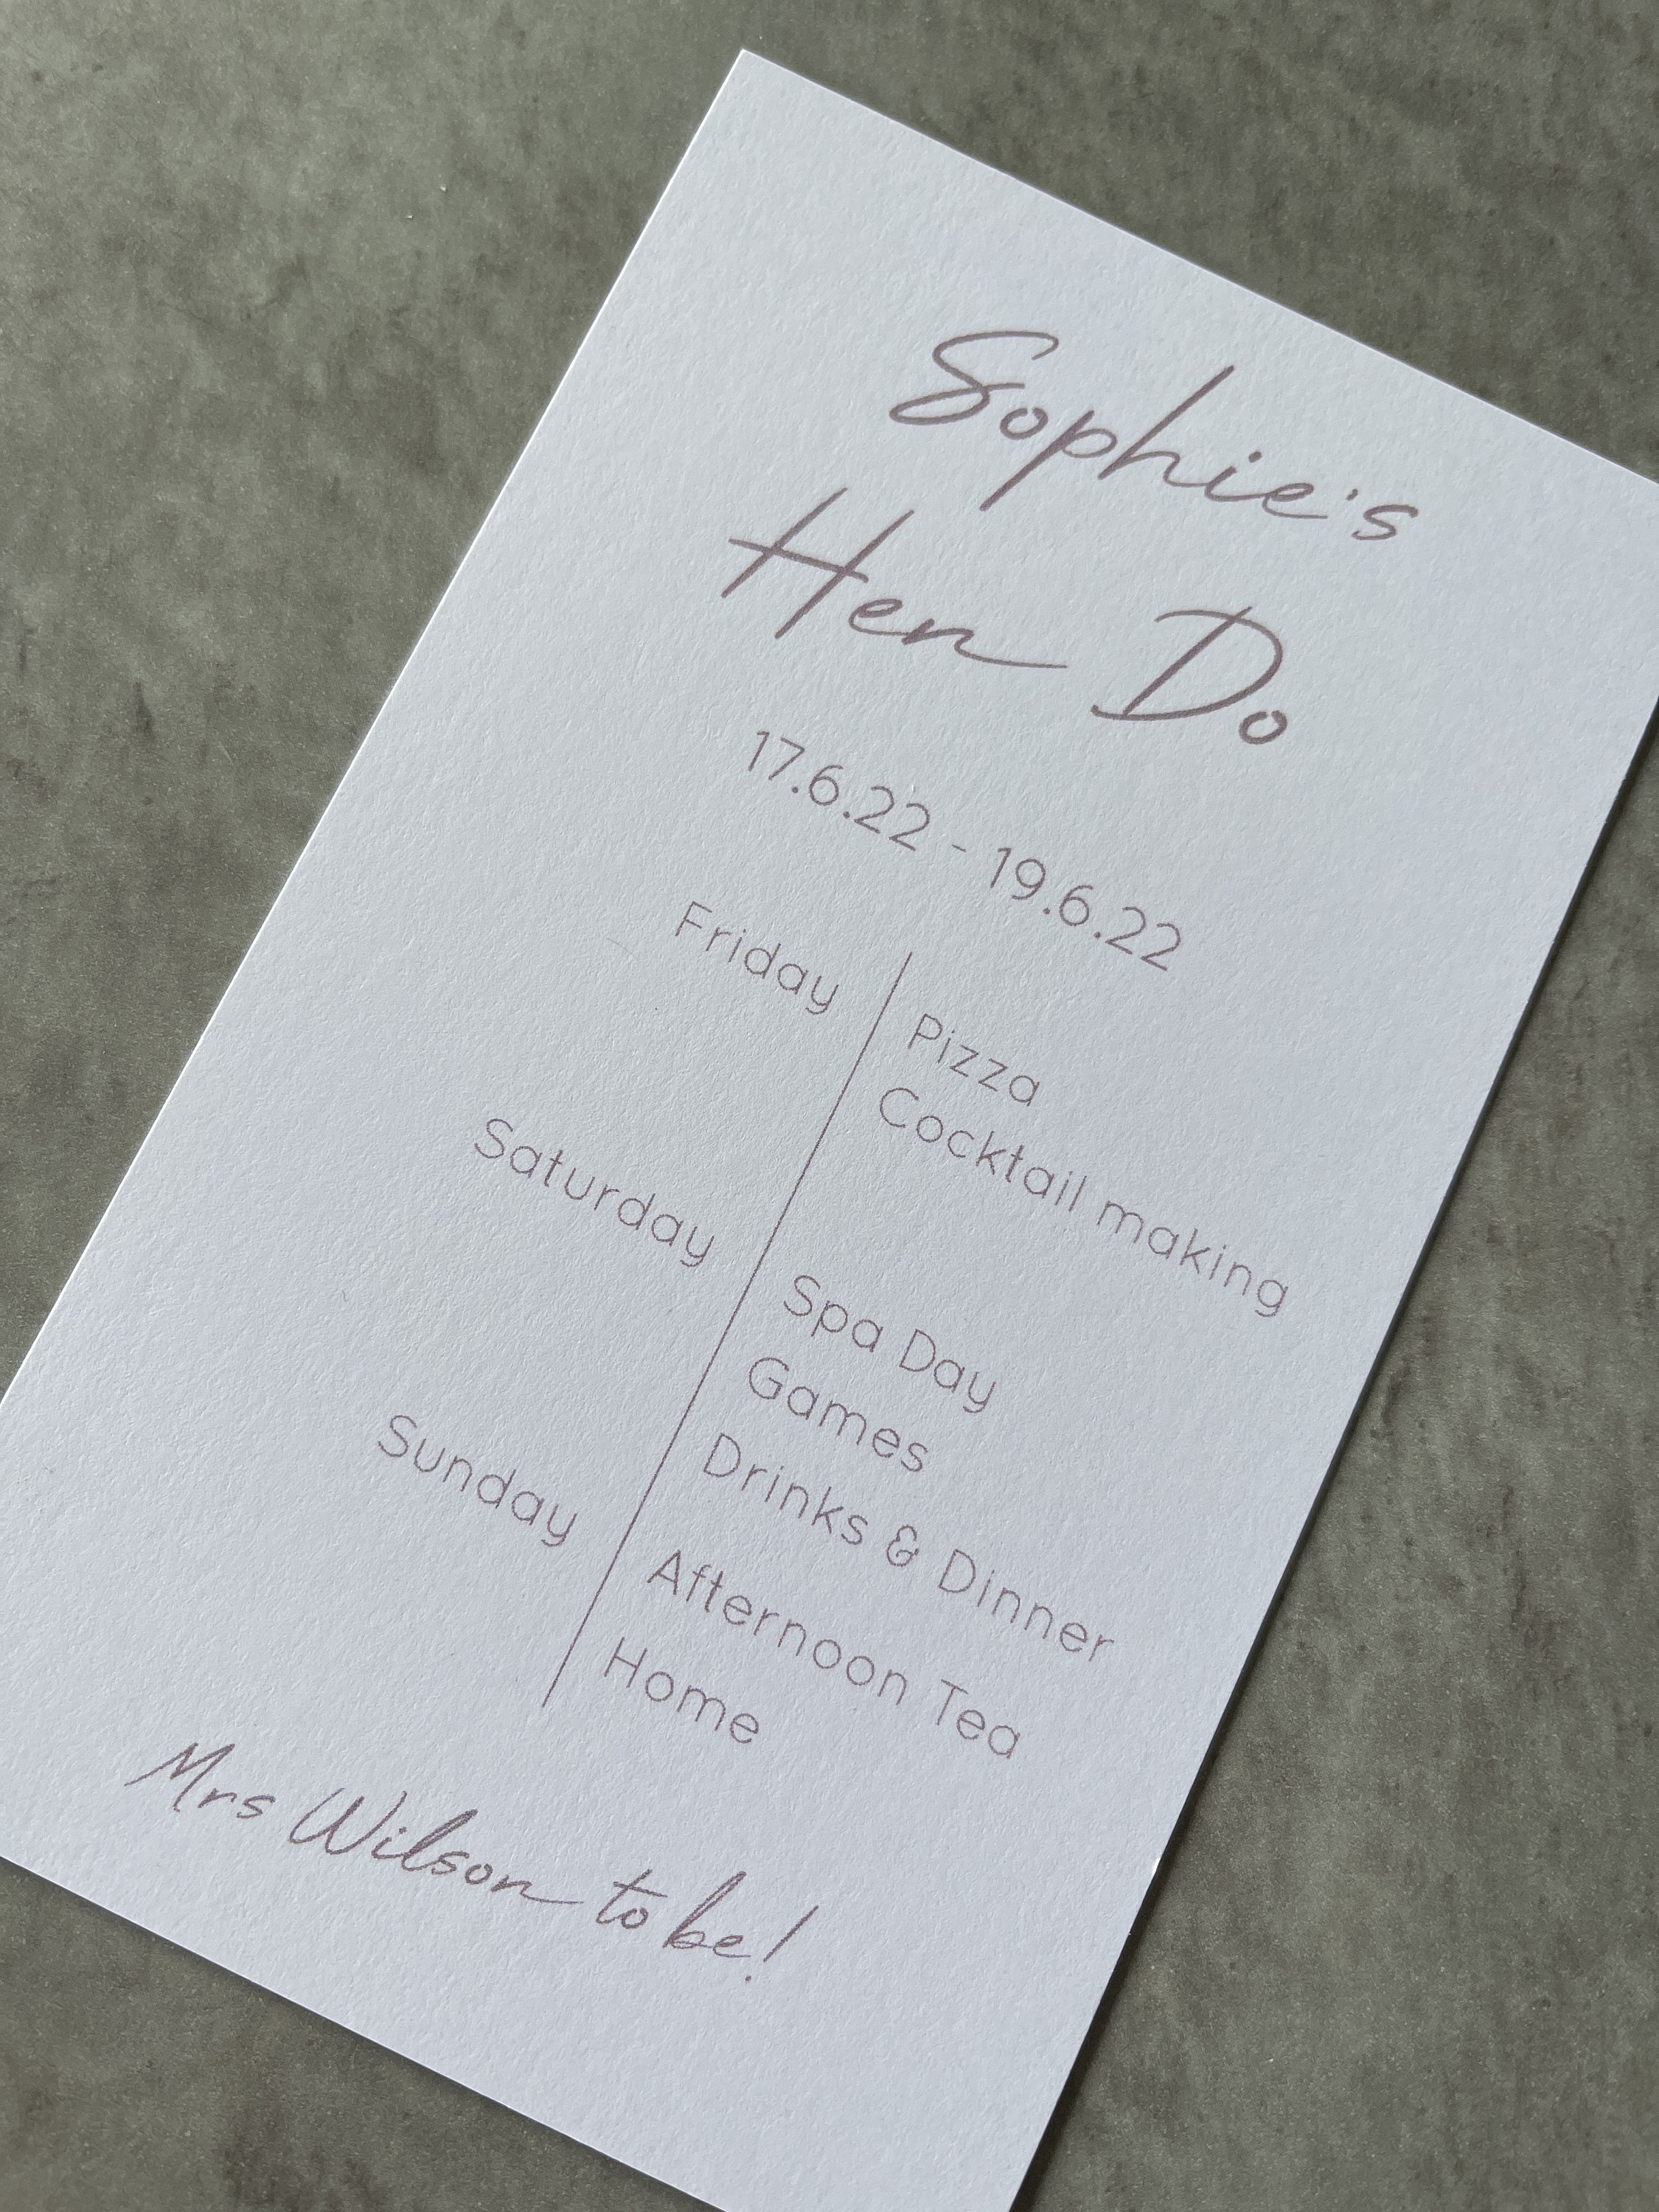 Sophie's
Hen Do
17.6.22 - 19.6.22
Friday
Pizza
Cocktail making
Saturday
Spa Day
Games
Drinks & Dinner
Sunday
Afternoon Tea
Home
Mrs Wilson to be!